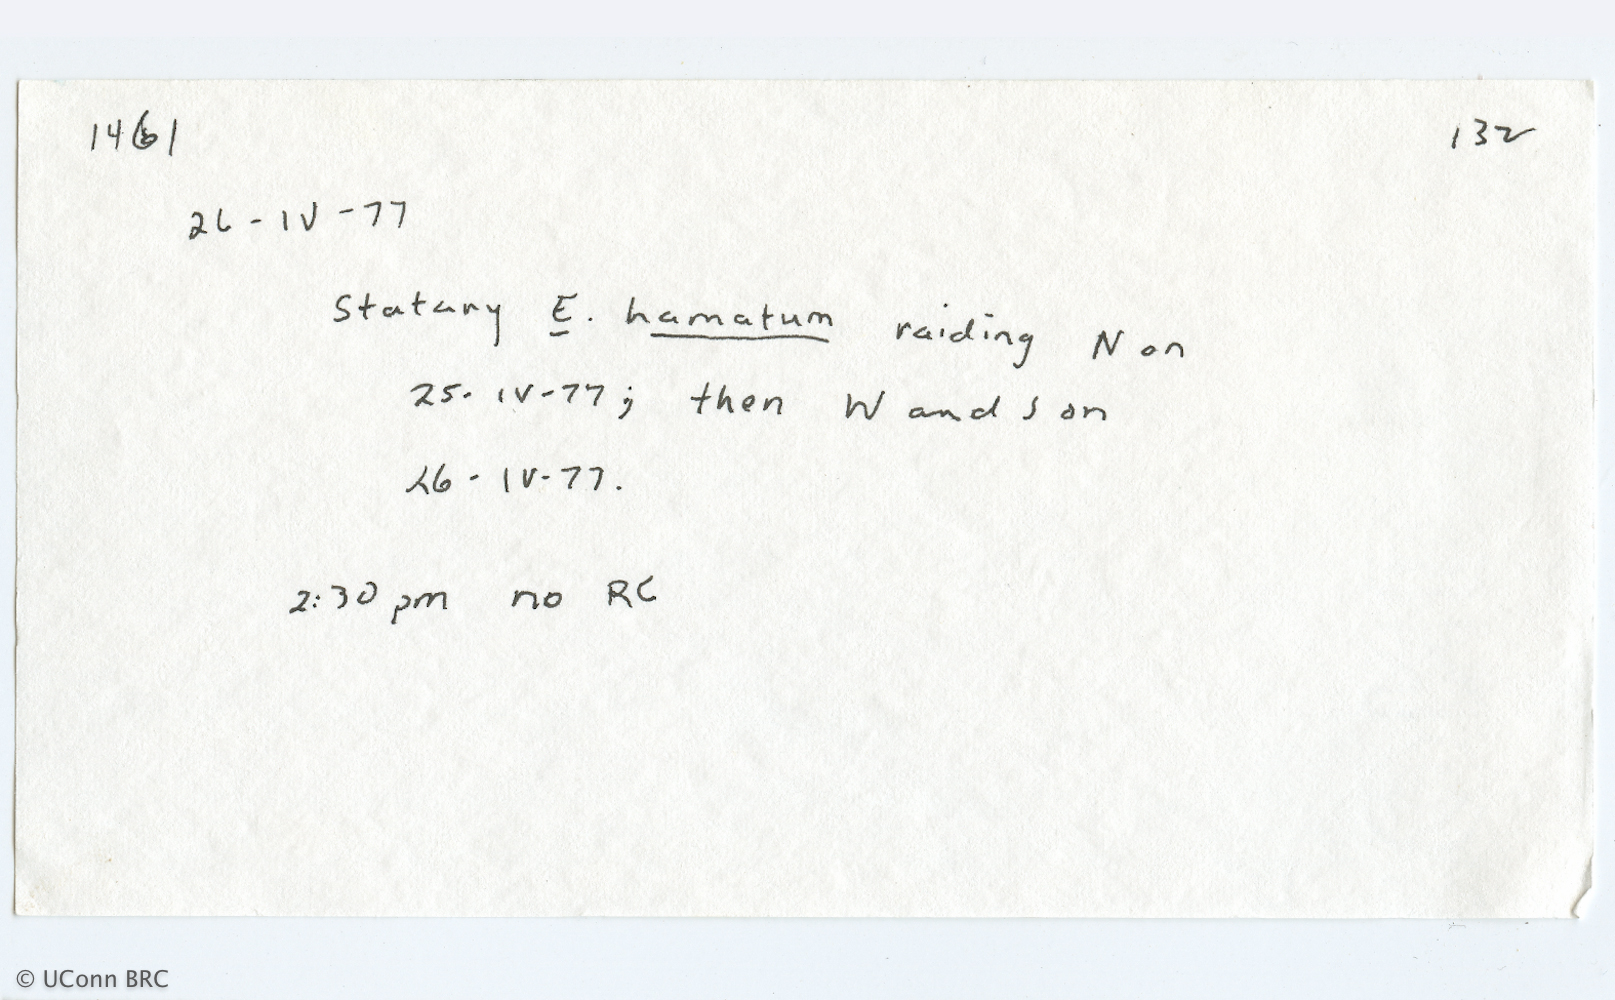 1461 132
26-IV-77
Statary E. hamatum raiding N on
25-IV-77; then W and S on
26-IV-77.
2:30 pm no RC
© UConn BRC